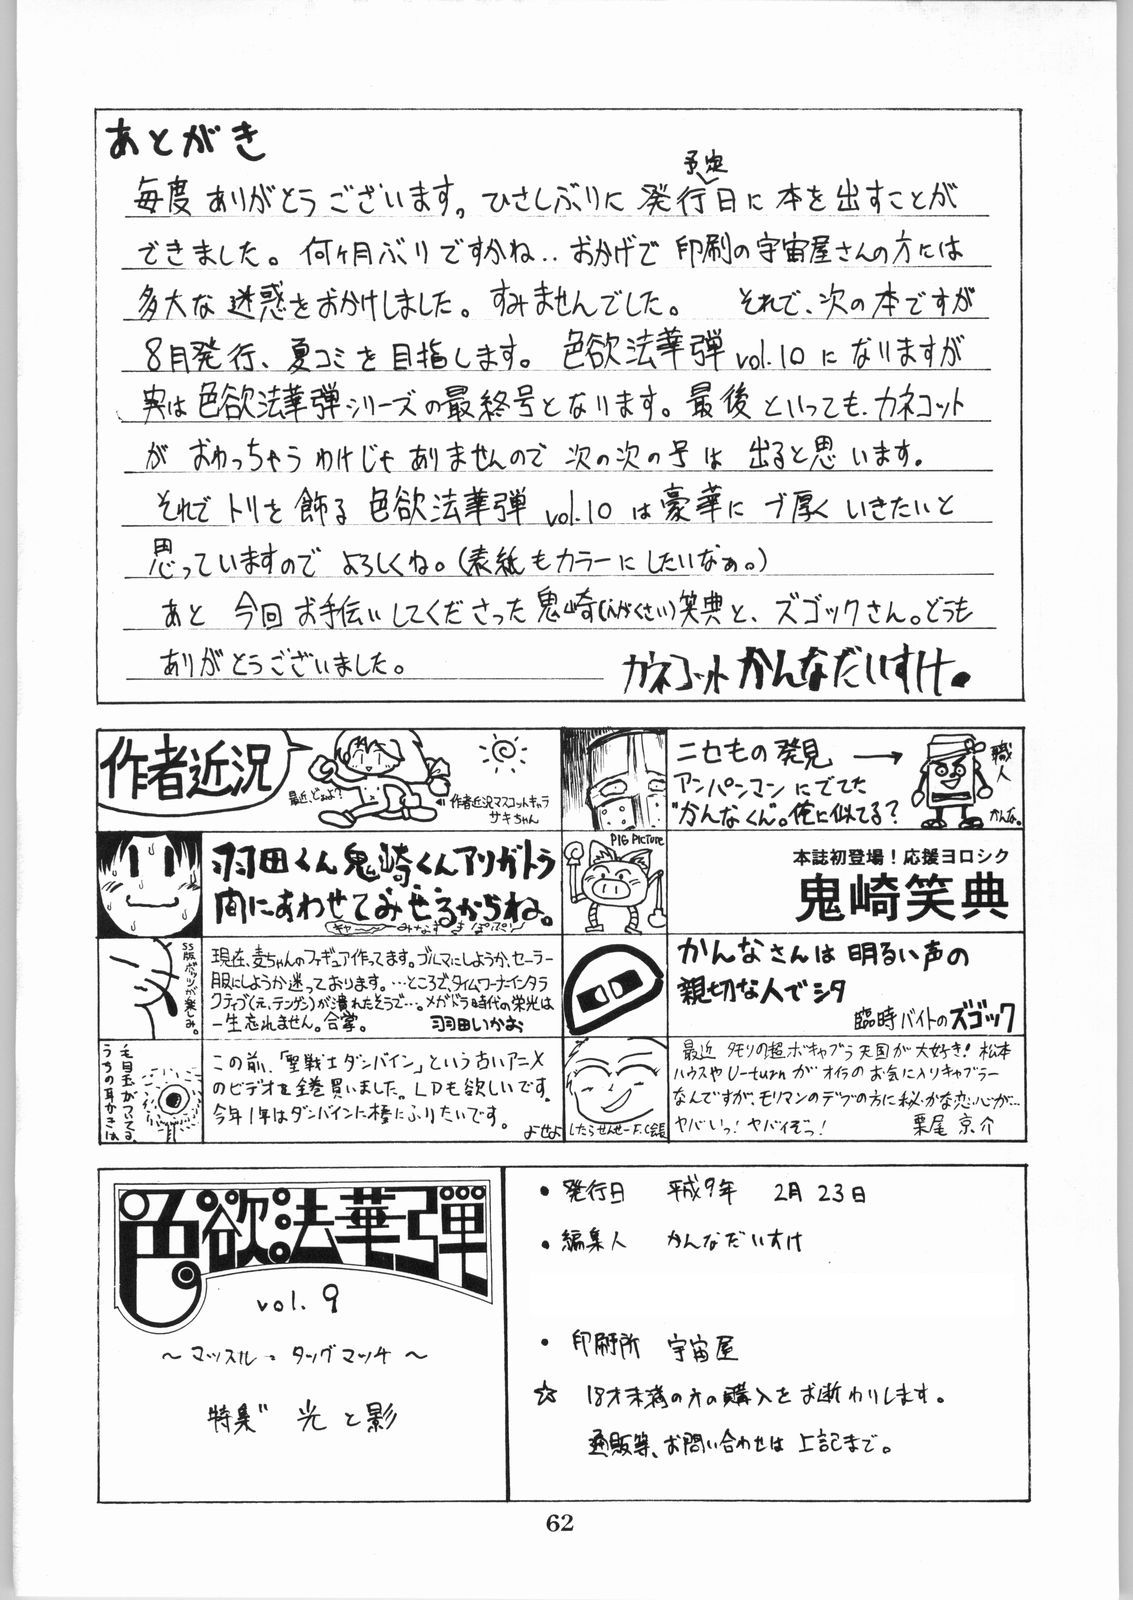 あとがき
毎度ありがとうございます。ひさしぶりに発行予定日に本を出すことが
できました。何ヶ月ぶりですかね‥おかげで印刷の宇宙屋さんの方には
多大な迷惑をおかけしました。すみませんでした。 それで、次の本ですが
8月発行、夏コミを目指します。色欲法華弾vol.10になりますが
実は色欲法華弾シリーズの最終号となります。最後といっても、カネコット
がおわっちゃうわけじゃありませんので次の次の号は出ると思います。
それでトリを飾る色欲法華弾vol.10は豪華にブ厚くいきたいと
思っていますのでよろしくね。(表紙もカラーにしたいなぁ。)
あと今回お手伝いしてくださった鬼崎(えがくさい)笑典と、ズゴックさん。どうも
ありがとうございました。
カネコット かんなだいすけ。
作者近況
最近、どぉよ?
作者近況マスコットキャラ
サキちゃん
ニセもの発見 →
アンパンマンにでてた
"かんなくん"。俺に似てる?
職人
かんな。
羽田くん鬼崎くんアリガトう
間にあわせてみせるからね。
PIG PICTURE
本誌初登場!応援ヨロシク
鬼崎笑典
SS版ポリッツが楽しみ。
現在、麦ちゃんのフィギュア作ってます。ブルマにしようか、セーラー
服にしようか迷っております。…ところで、タイムワーナーインタラ
クティブ(え、テンゲン)が潰れたそうで…。メガドラ時代の栄光は
一生忘れません。合掌。 羽田いかお
かんなさんは明るい声の
親切な人でシタ
臨時バイトのズゴック
毛目玉がついてる。
うちの耳かきは
この前、「聖戦士ダンバイン」という古いアニメ
のビデオを全巻買いました。LDも欲しいです。
今年1年はダンバインに棒にふりたいです。
よせよ
したらせんせーF.C会長
最近タモリの超ボキャブラ天国が大好き!松本
ハウスやU-turnがオイラのお気に入りキャブラー
なんですが、モリマンのデブの方に秘かな恋心が…
ヤバいっ!ヤバイぞっ!
栗尾京介
色欲法華弾
vol.9
～マッスル・タッグマッチ～
特集 光と影
・発行日 平成9年 2月23日
・編集人 かんなだいすけ
・印刷所 宇宙屋
☆ 18才未満の方の購入をお断わりします。
通販等、お問い合わせは上記まで。
62